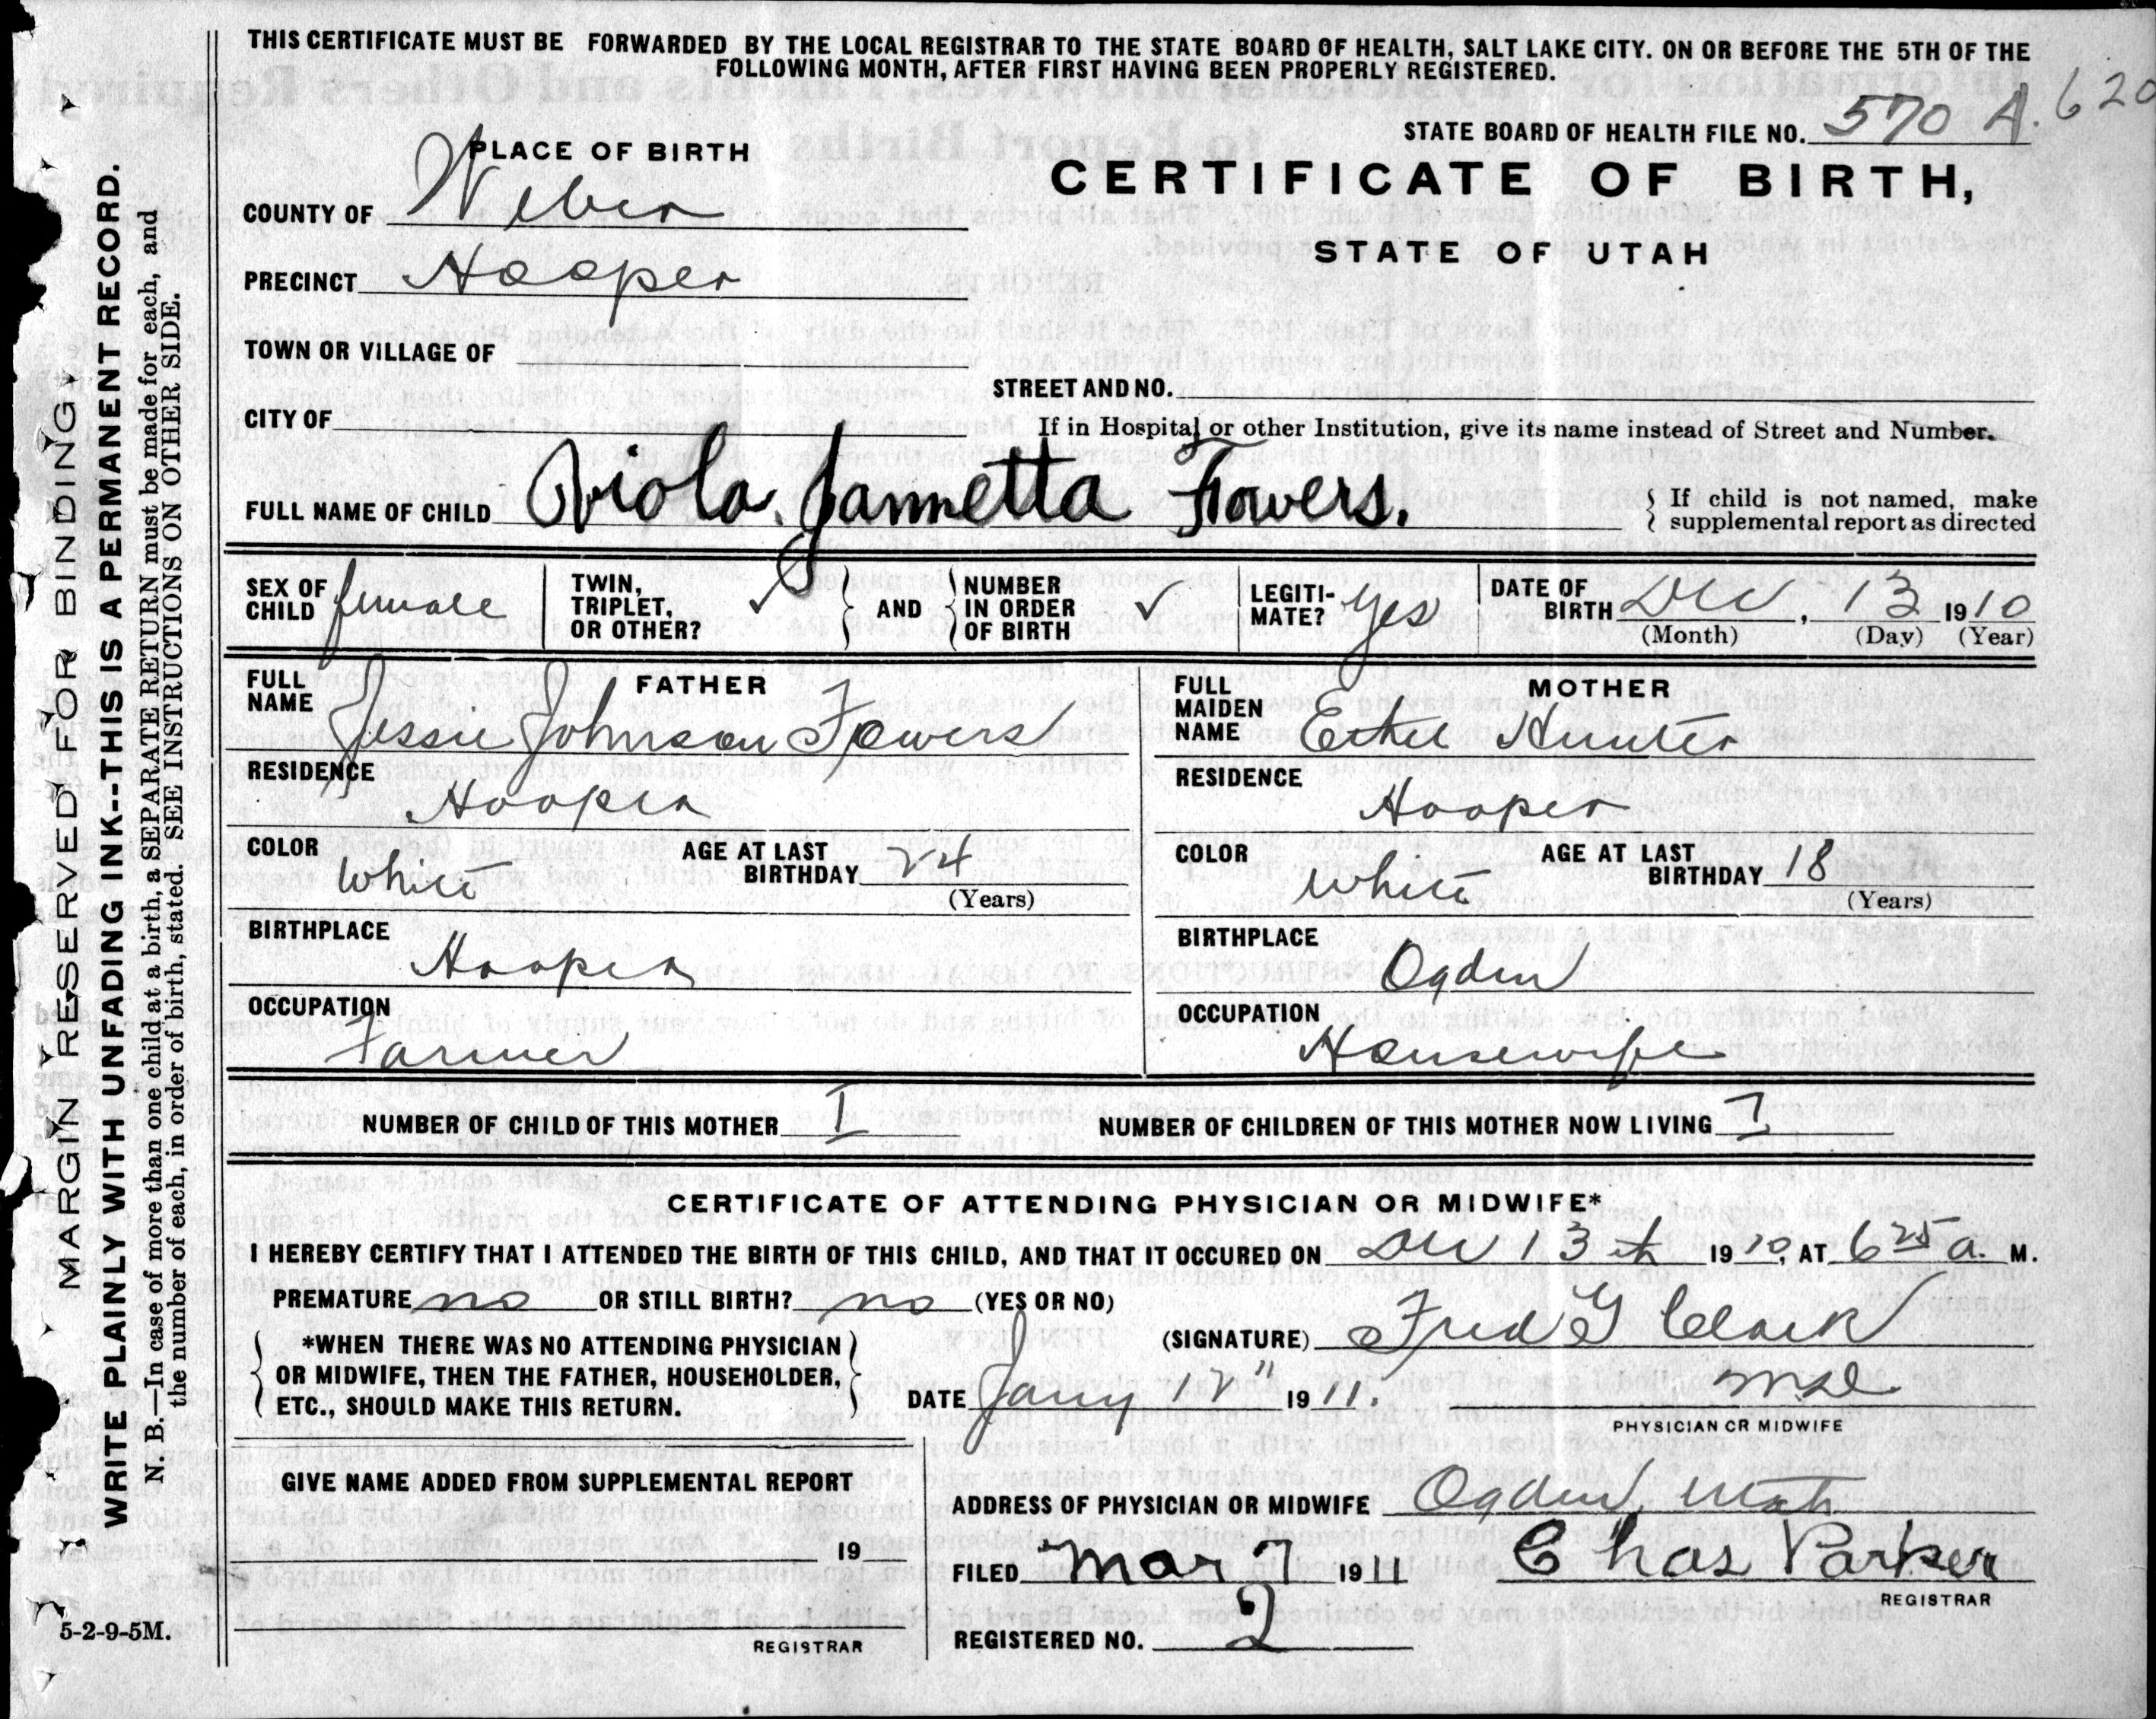 THIS CERTIFICATE MUST BE FORWARDED BY THE LOCAL REGISTRAR TO THE STATE BOARD OF HEALTH, SALT LAKE CITY. ON OR BEFORE THE 5TH OF THE
FOLLOWING MONTH, AFTER FIRST HAVING BEEN PROPERLY REGISTERED.
STATE BOARD OF HEALTH FILE NO. 570 A. 620
PLACE OF BIRTH
CERTIFICATE OF BIRTH,
STATE OF UTAH
COUNTY OF Weber
PRECINCT Hooper
TOWN OR VILLAGE OF
STREET AND NO.
CITY OF
If in Hospital or other Institution, give its name instead of Street and Number.
FULL NAME OF CHILD Viola Jannetta Fowers.
If child is not named, make
supplemental report as directed
SEX OF CHILD female
TWIN, TRIPLET, OR OTHER? ✓
AND
NUMBER IN ORDER OF BIRTH ✓
LEGITI-MATE? yes
DATE OF BIRTH Dec, 13 1910
(Month) (Day) (Year)
FATHER
FULL NAME Jessie Johnson Fowers
RESIDENCE Hooper
COLOR White
AGE AT LAST BIRTHDAY 24
(Years)
BIRTHPLACE Hooper
OCCUPATION Farmer
MOTHER
FULL MAIDEN NAME Ethel Hunter
RESIDENCE Hooper
COLOR White
AGE AT LAST BIRTHDAY 18
(Years)
BIRTHPLACE Ogden
OCCUPATION Housewife
NUMBER OF CHILD OF THIS MOTHER I
NUMBER OF CHILDREN OF THIS MOTHER NOW LIVING I
CERTIFICATE OF ATTENDING PHYSICIAN OR MIDWIFE*
I HEREBY CERTIFY THAT I ATTENDED THE BIRTH OF THIS CHILD, AND THAT IT OCCURED ON Dec 13th 1910, AT 6 25 a. M.
PREMATURE no OR STILL BIRTH? no (YES OR NO)
*WHEN THERE WAS NO ATTENDING PHYSICIAN
OR MIDWIFE, THEN THE FATHER, HOUSEHOLDER,
ETC., SHOULD MAKE THIS RETURN.
(SIGNATURE) Fred G Clark
DATE Jany 12" 1911.
PHYSICIAN OR MIDWIFE
GIVE NAME ADDED FROM SUPPLEMENTAL REPORT
19
REGISTRAR
ADDRESS OF PHYSICIAN OR MIDWIFE Ogden Utah
FILED Mar 7 1911 Chas Parker
REGISTRAR
REGISTERED NO. 2
MARGIN RESERVED FOR BINDING
WRITE PLAINLY WITH UNFADING INK--THIS IS A PERMANENT RECORD.
N. B.—In case of more than one child at a birth, a SEPARATE RETURN must be made for each, and
the number of each, in order of birth, stated. SEE INSTRUCTIONS ON OTHER SIDE.
5-2-9-5M.